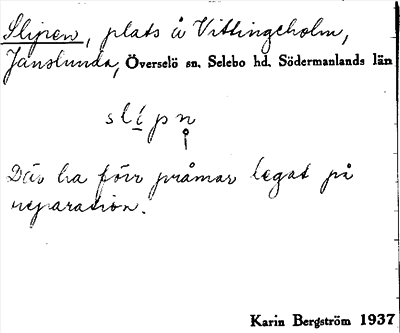 Slipen, plats å Vittingeholm,
Janslunda, Överselö sn. Selebo hd. Södermanlands län
slipn
Där ha förr pråmar legat på
reparation.
Karin Bergström 1937